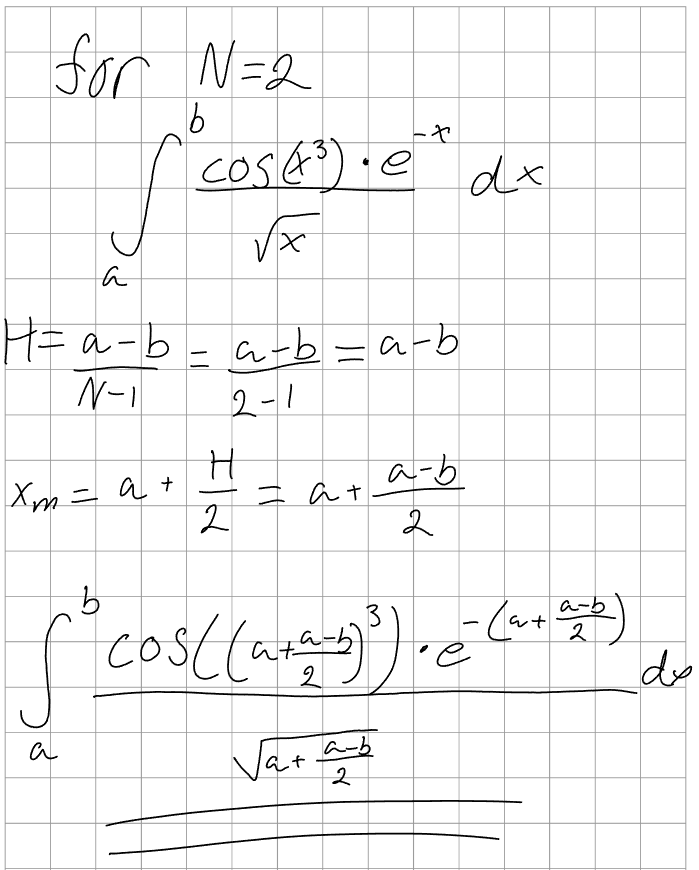 for N=2
∫_a^b (cos(x³) · e^{-x}) / √x dx
H = (a-b)/(N-1) = (a-b)/(2-1) = a-b
x_m = a + H/2 = a + (a-b)/2
∫_a^b (cos((a+(a-b)/2)³) · e^{-(a+(a-b)/2)}) / √(a+(a-b)/2) dx